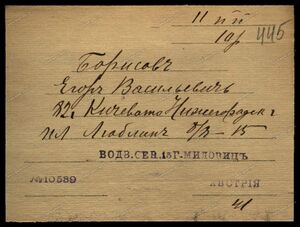 11 пп
445
10р
Борисовъ
Егоръ Васильевичъ
82. Кичевато Нижегородск г
пл Люблинъ 8/X - 15
ВОДВ.СЕВ.13Г-МИЛОВИЦЪ
№10539 АВСТРІЯ
41